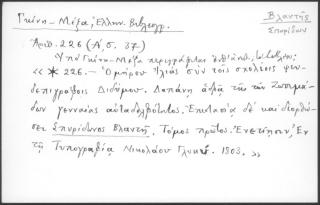 Γκίνη-Μέξα, Ἑλλην. Βιβλιογρ.
Βλαντῆς
Σπυρίδων
Ἀριθ. 226 (Α΄, σ. 37)
Ὑπὸ Γκίνη-Μέξα περιγράφεται
« * 226.— Ὁμήρου Ἰλιὰς σὺν τοῖς σχολίοις ψευ-
δεπιγράφοις Διδύμου. Δαπάνῃ τῶν Ζωσιμά-
δων γενναίας αὐταδελφότητος. Ἐπιστασίᾳ δὲ καὶ διορθώ-
σει Σπυρίδωνος Βλαντῆ. Τόμος πρῶτος. Ἐνετίησιν, Ἐν
τῇ Τυπογραφίᾳ Νικολάου Γλυκεῖ. 1803. »